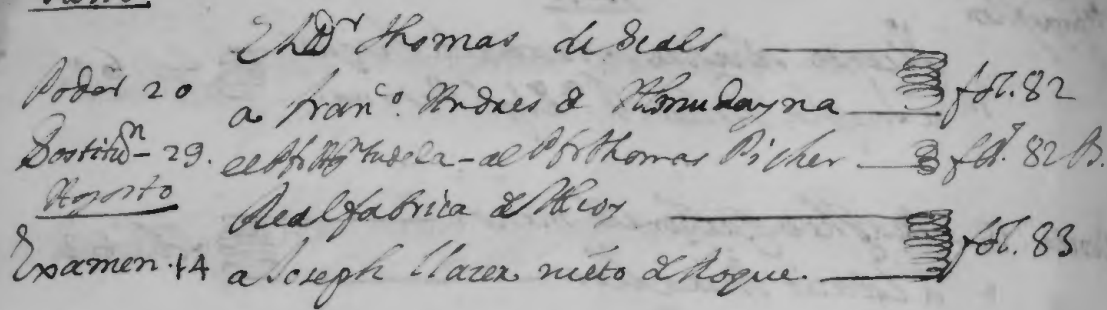 El Dr Thomas de Scals
Poder 20 a Franco. Andres d Almudayna fol. 82
Sostitun 29. el Pr Tudela - al Pr Thomas Picher fol. 82 B.
Agosto
Real fabrica d Alcoy
Examen. 14 a Joseph Llacer nieto d Roque. fol. 83